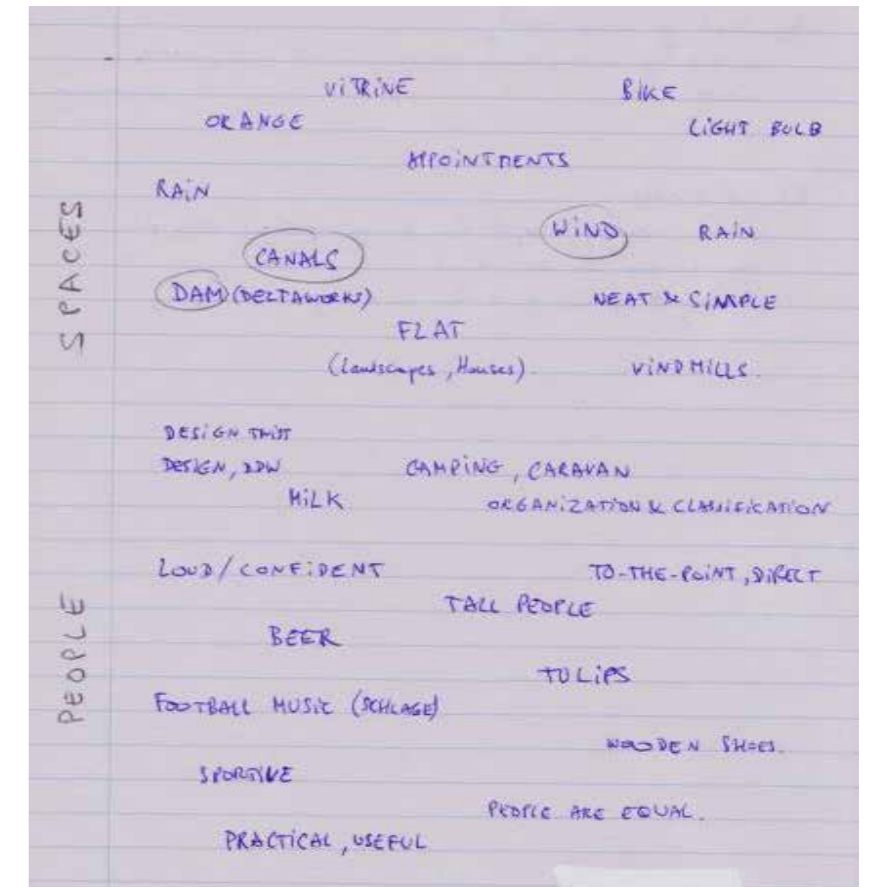 VITRINE BIKE
ORANGE LIGHT BULB
APPOINTMENTS
RAIN
WIND RAIN
CANALS
DAM (DELTAWORKS) NEAT & SIMPLE
FLAT
(Landscapes, Houses). VINDMILLS.
SPACES
DESIGN
DESIGN, DDW CAMPING, CARAVAN
MILK ORGANIZATION & CLASSIFICATION
LOUD/CONFIDENT TO-THE-POINT, DIRECT
TALL PEOPLE
BEER
TULIPS
FOOTBALL MUSIC (SCHLAGE)
WOODEN SHOES.
SPORTIVE
PEOPLE ARE EQUAL.
PRACTICAL, USEFUL
PEOPLE